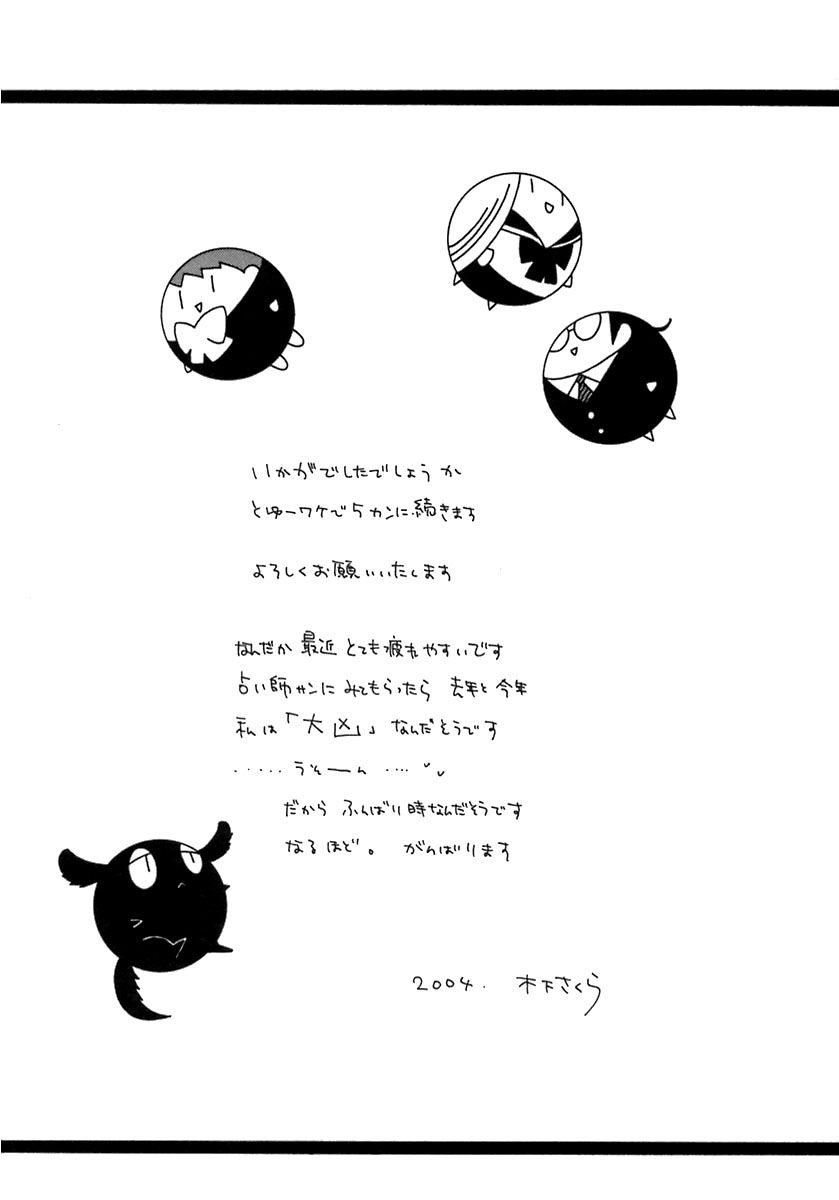 いかがでしたでしょうか
とゆーワケで5カンに続きます
よろしくお願いいたします
なんだか最近とても疲れやすいです
占い師サンにみてもらったら 去年と今年
私は「大凶」なんだそうです
・・・・・うそーーん・・・・
だから ふんばり時なんだそうです
なるほど。 がんばります
2004. 木下さくら